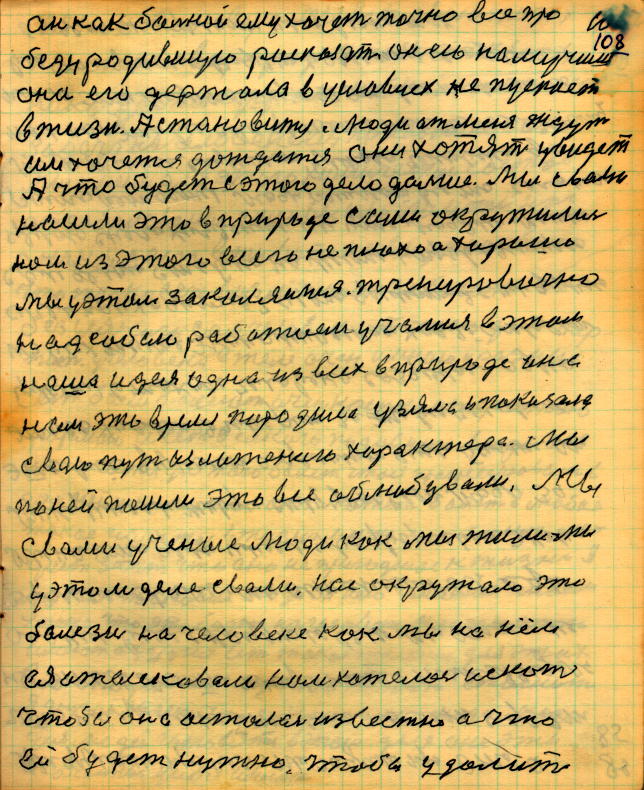 108
он как болной ему хочет точно все про
беду родившую росказат он ею намучился
она его держала в условиях не пускает
в жизн. А становится люди от меня ждут
им хочется дождатся они хотят увидет
А что будет с этого дела далше. Мы с вами
нашли это в природе сами окружилися
ном из этого всего не плохо а хорошо
мы у этом закаляимся. тренировочно
над собою работоем учимся в этом
наша идея одна из всех в природе она
нам это время породила узяла и показала
свою пут изложеного характера. Мы
по ней пошли это все облюбували. Мы
с вами ученые люди как мы жили мы
у этом деле с вами. нас окружало это
болезн на человеке как мы на нём
нам хотелос искат
чтобы она осталас известно а что
ей будет нужно. чтобы удалит